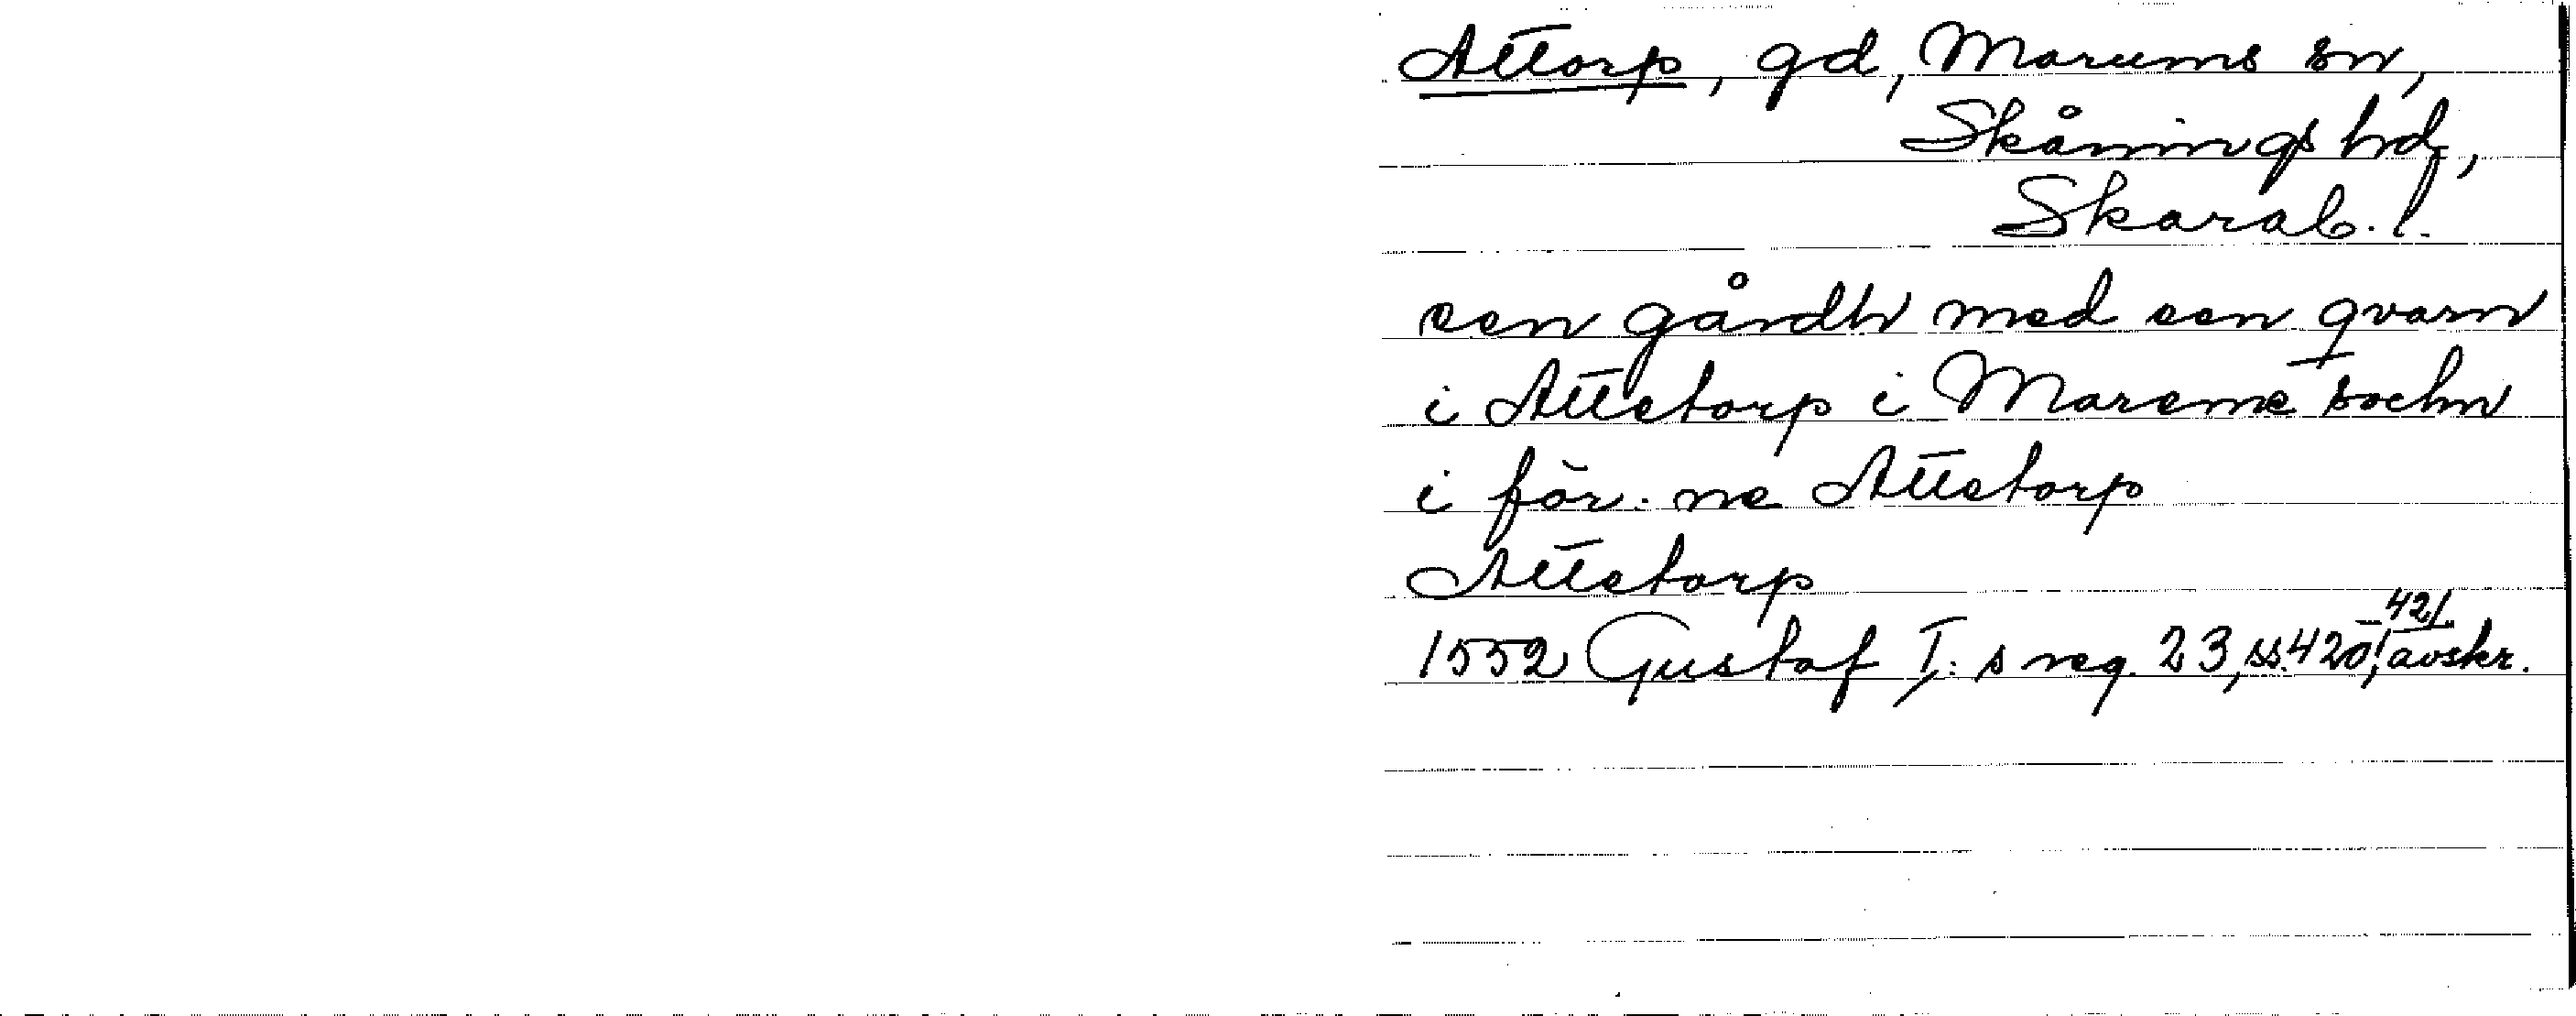 Attorp, gd, Marums sn,
Skånings hd,
Skarab. l.
een gårdh med een qvarn
i Attetorp i Mareme sochn
i för: ne Attetorp
Attetorp
1552 Gustaf I: s reg. 23, ss. 420, -421, avskr.